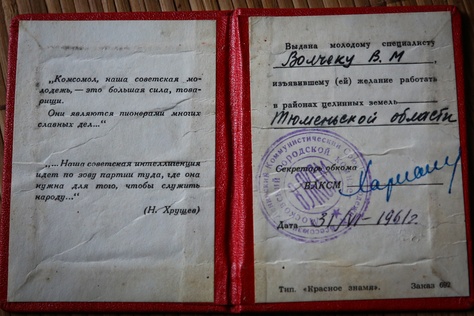 „Комсомол, наша советская мо-
лодежь, — это большая сила, това-
рищи.
Они являются пионерами многих
славных дел..."
„...Наша советская интеллигенция
идет по зову партии туда, где она
нужна для того, чтобы служить
народу..."
(Н. Хрущев)
Выдана молодому специалисту
Волчеку В. М
изъявившему (ей) желание работать
в районах целинных земель
Тюменьской области
Секретарь обкома
ВЛКСМ
Дата 31/VII-1961г.
Тип. «Красное знамя». Заказ 602